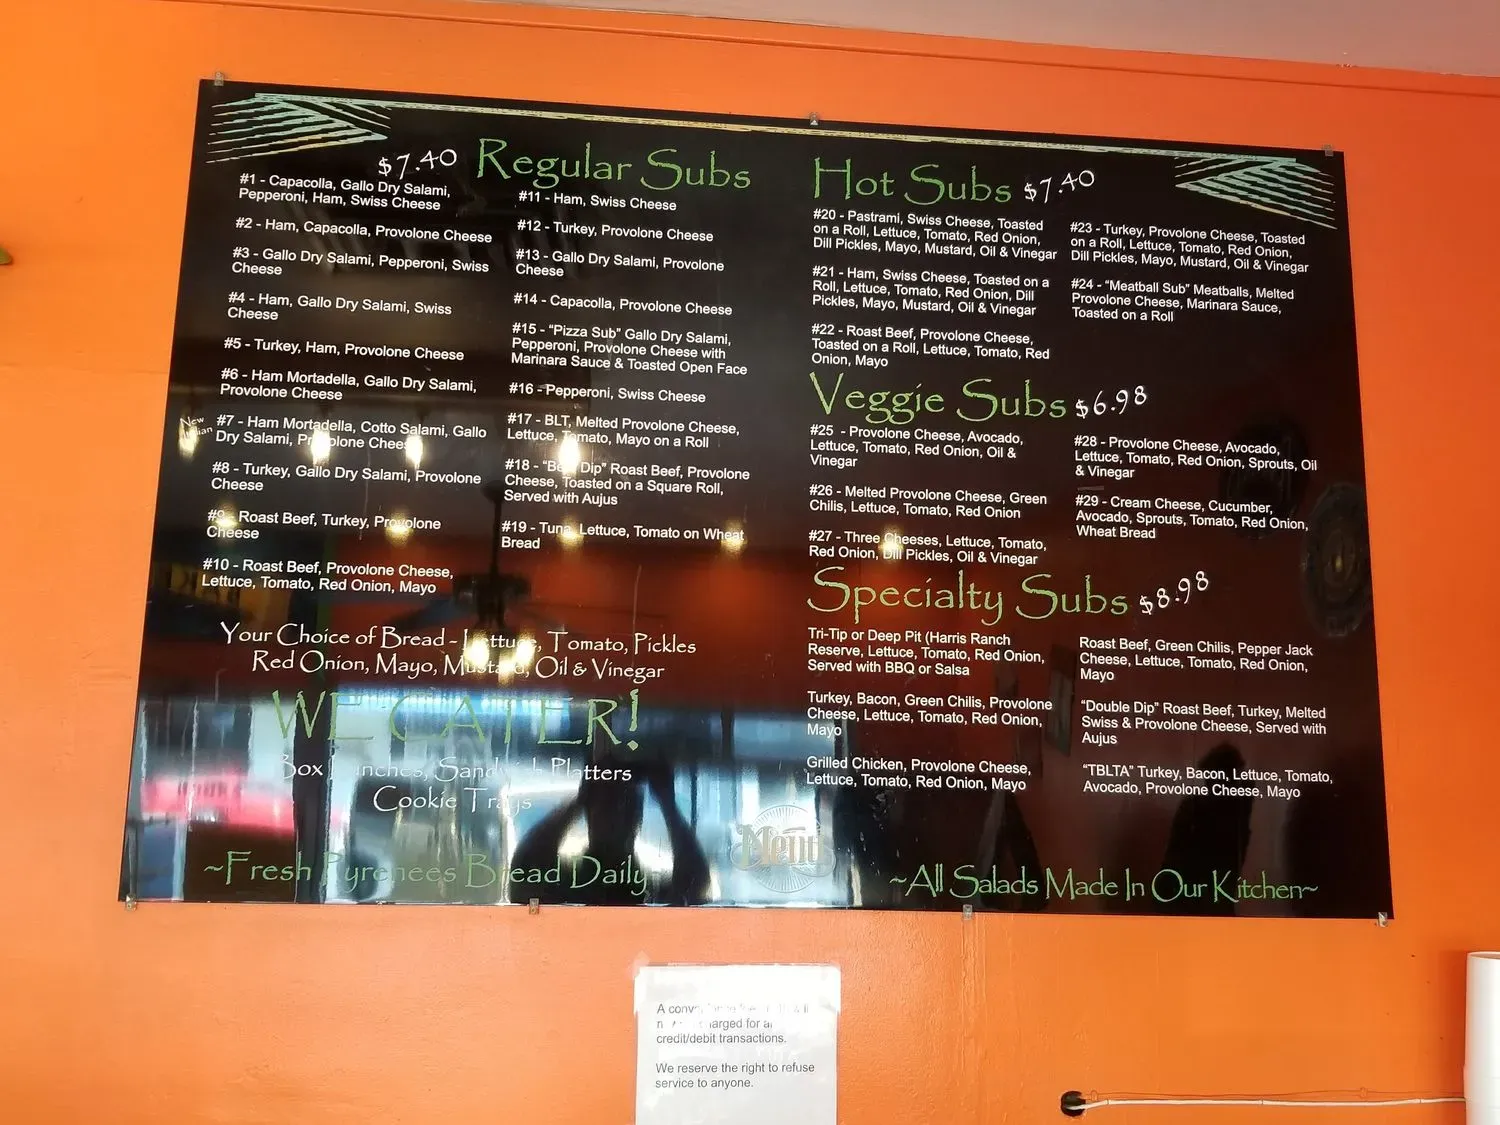 $7.40 Regular Subs
#1 - Capacolla, Gallo Dry Salami,
Pepperoni, Ham, Swiss Cheese
#2 - Ham, Capacolla, Provolone Cheese
#3 - Gallo Dry Salami, Pepperoni, Swiss
Cheese
#4 - Ham, Gallo Dry Salami, Swiss
Cheese
#5 - Turkey, Ham, Provolone Cheese
#6 - Ham Mortadella, Gallo Dry Salami,
Provolone Cheese
New
#7 - Ham Mortadella, Cotto Salami, Gallo
Dry Salami, Provolone Cheese
#8 - Turkey, Gallo Dry Salami, Provolone
Cheese
#9 - Roast Beef, Turkey, Provolone
Cheese
#10 - Roast Beef, Provolone Cheese,
Lettuce, Tomato, Red Onion, Mayo
#11 - Ham, Swiss Cheese
#12 - Turkey, Provolone Cheese
#13 - Gallo Dry Salami, Provolone
Cheese
#14 - Capacolla, Provolone Cheese
#15 - “Pizza Sub” Gallo Dry Salami,
Pepperoni, Provolone Cheese with
Marinara Sauce & Toasted Open Face
#16 - Pepperoni, Swiss Cheese
#17 - BLT, Melted Provolone Cheese,
Lettuce, Tomato, Mayo on a Roll
#18 - “Beef Dip” Roast Beef, Provolone
Cheese, Toasted on a Square Roll,
Served with Aujus
#19 - Tuna, Lettuce, Tomato on Wheat
Bread
Your Choice of Bread - Lettuce, Tomato, Pickles
Red Onion, Mayo, Mustard, Oil & Vinegar
WE CATER!
Box Lunches, Sandwich Platters
Cookie Trays
~Fresh Pyrenees Bread Daily~
Hot Subs $7.40
#20 - Pastrami, Swiss Cheese, Toasted
on a Roll, Lettuce, Tomato, Red Onion,
Dill Pickles, Mayo, Mustard, Oil & Vinegar
#21 - Ham, Swiss Cheese, Toasted on a
Roll, Lettuce, Tomato, Red Onion, Dill
Pickles, Mayo, Mustard, Oil & Vinegar
#22 - Roast Beef, Provolone Cheese,
Toasted on a Roll, Lettuce, Tomato, Red
Onion, Mayo
#23 - Turkey, Provolone Cheese, Toasted
on a Roll, Lettuce, Tomato, Red Onion,
Dill Pickles, Mayo, Mustard, Oil & Vinegar
#24 - “Meatball Sub” Meatballs, Melted
Provolone Cheese, Marinara Sauce,
Toasted on a Roll
Veggie Subs $6.98
#25 - Provolone Cheese, Avocado,
Lettuce, Tomato, Red Onion, Oil &
Vinegar
#26 - Melted Provolone Cheese, Green
Chilis, Lettuce, Tomato, Red Onion
#27 - Three Cheeses, Lettuce, Tomato,
Red Onion, Dill Pickles, Oil & Vinegar
#28 - Provolone Cheese, Avocado,
Lettuce, Tomato, Red Onion, Sprouts, Oil
& Vinegar
#29 - Cream Cheese, Cucumber,
Avocado, Sprouts, Tomato, Red Onion,
Wheat Bread
Specialty Subs $8.98
Tri-Tip or Deep Pit (Harris Ranch
Reserve, Lettuce, Tomato, Red Onion,
Served with BBQ or Salsa
Turkey, Bacon, Green Chilis, Provolone
Cheese, Lettuce, Tomato, Red Onion,
Mayo
Grilled Chicken, Provolone Cheese,
Lettuce, Tomato, Red Onion, Mayo
Roast Beef, Green Chilis, Pepper Jack
Cheese, Lettuce, Tomato, Red Onion,
Mayo
“Double Dip” Roast Beef, Turkey, Melted
Swiss & Provolone Cheese, Served with
Aujus
“TBLTA” Turkey, Bacon, Lettuce, Tomato,
Avocado, Provolone Cheese, Mayo
Menu
~All Salads Made In Our Kitchen~
A
for
credit/debit transactions.
We reserve the right to refuse
service to anyone.